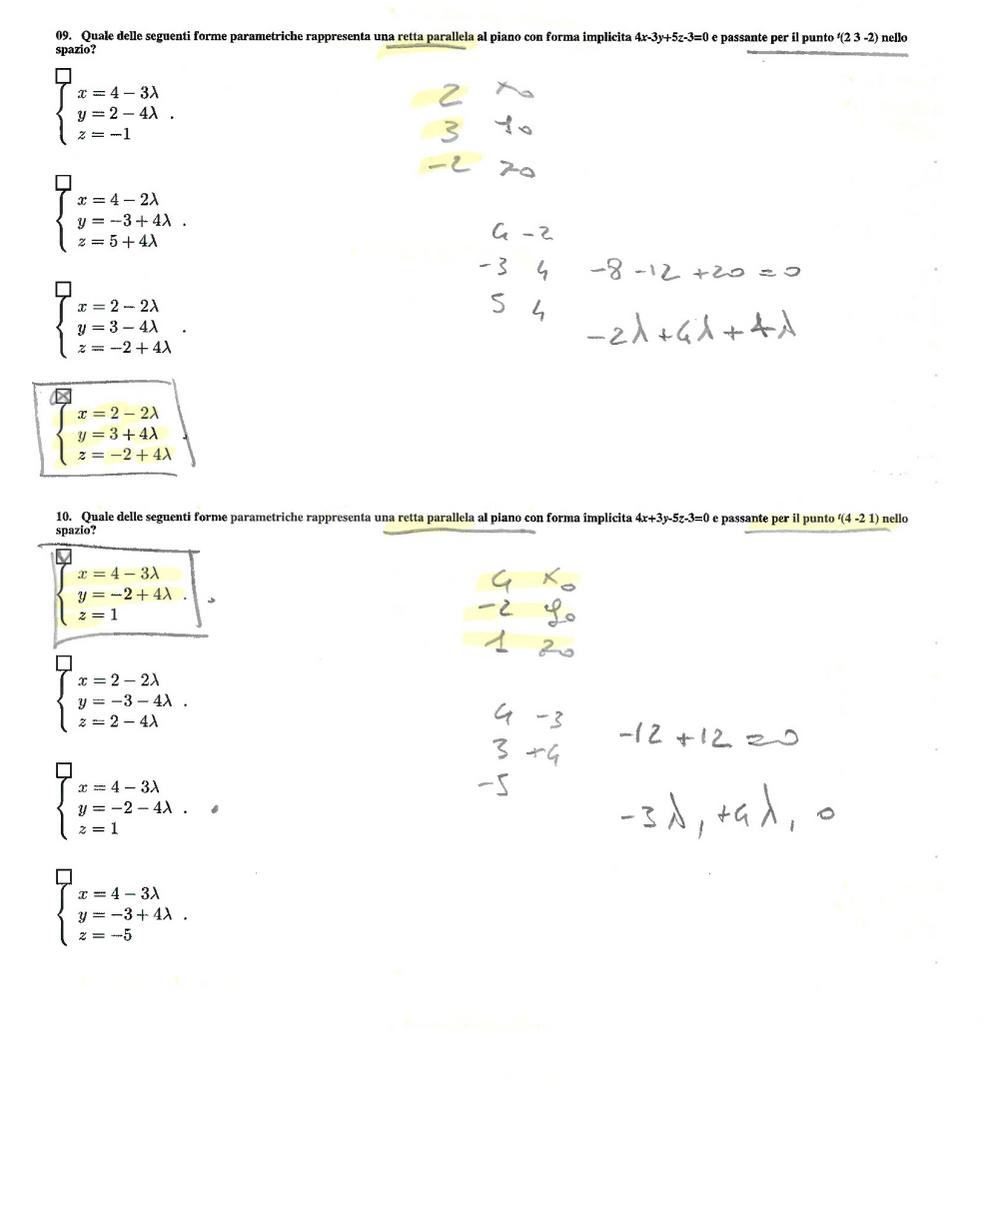 09. Quale delle seguenti forme parametriche rappresenta una retta parallela al piano con forma implicita 4x-3y+5z-3=0 e passante per il punto ᵗ(2 3 -2) nello
spazio?
x = 4 − 3λ
y = 2 − 4λ .
z = −1
2 x₀
3 y₀
−2 z₀
x = 4 − 2λ
y = −3 + 4λ .
z = 5 + 4λ
4 −2
−3 4 −8 −12 +20 = 0
5 4
−2λ + 4λ + 4λ
x = 2 − 2λ
y = 3 − 4λ .
z = −2 + 4λ
x = 2 − 2λ
y = 3 + 4λ .
z = −2 + 4λ
10. Quale delle seguenti forme parametriche rappresenta una retta parallela al piano con forma implicita 4x+3y-5z-3=0 e passante per il punto ᵗ(4 -2 1) nello
spazio?
x = 4 − 3λ
y = −2 + 4λ .
z = 1
4 x₀
−2 y₀
1 z₀
x = 2 − 2λ
y = −3 − 4λ .
z = 2 − 4λ
4 −3
3 +4 −12 +12 = 0
−5
x = 4 − 3λ
y = −2 − 4λ .
z = 1
−3λ, +4λ, 0
x = 4 − 3λ
y = −3 + 4λ .
z = −5